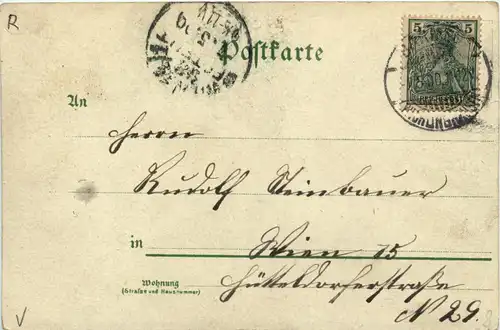 R
Postkarte
5 5
An
Herrn
Rudolf Steinbauer
in Wien 15
Wohnung
(Straße und Hausnummer)
Hütteldorferstraße
N 29.
V